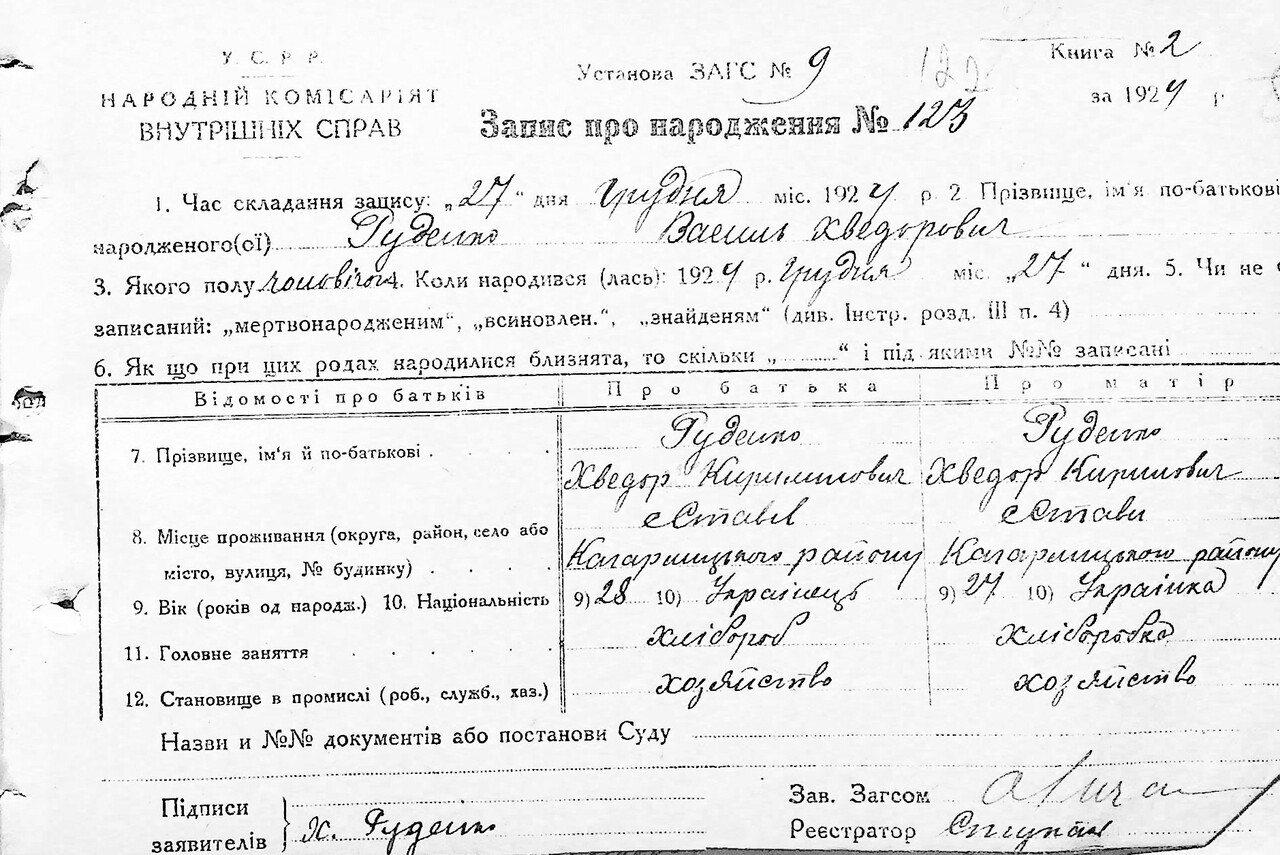 У. С. Р. Р.
НАРОДНІЙ КОМІСАРІЯТ
ВНУТРІШНІХ СПРАВ
Установа ЗАГС № 9
122
Книга № 2
за 1924 р
Запис про народження № 123
1. Час складання запису: „27“ дня Грудня міс. 1924 р 2 Прізвище, ім'я по-батькові
народженого(ої) Руденко Василь Хведорович
3. Якого полу чоловічої 4. Коли народився (лась): 1924 р. Грудня міс. „27“ дня. 5. Чи не
записаний: „мертвонародженим“, „всиновлен.“, „знайденям“ (див. Інстр. розд. III п. 4)
6. Як що при цих родах народилися близнята, то скільки „ “ і під якими №№ записані
Відомості про батьків Про батька Про матір
7. Прізвище, ім'я й по-батькові Руденко Руденко
Хведор Кирилович Хведор Кирилович
8. Місце проживання (округа, район, село або с Стави с Стави
місто, вулиця, № будинку) Кагарлицького району Кагарлицького району
9. Вік (років од народж.) 10. Національність 9) 28 10) Українець 9) 27 10) Українка
11. Головне заняття хлібороб хліборобка
12. Становище в промислі (роб., служб., хаз.) хозяйство хозяйство
Назви и №№ документів або постанови Суду
Підписи
заявителів } Х. Руденко
Зав. Загсом
Реєстратор